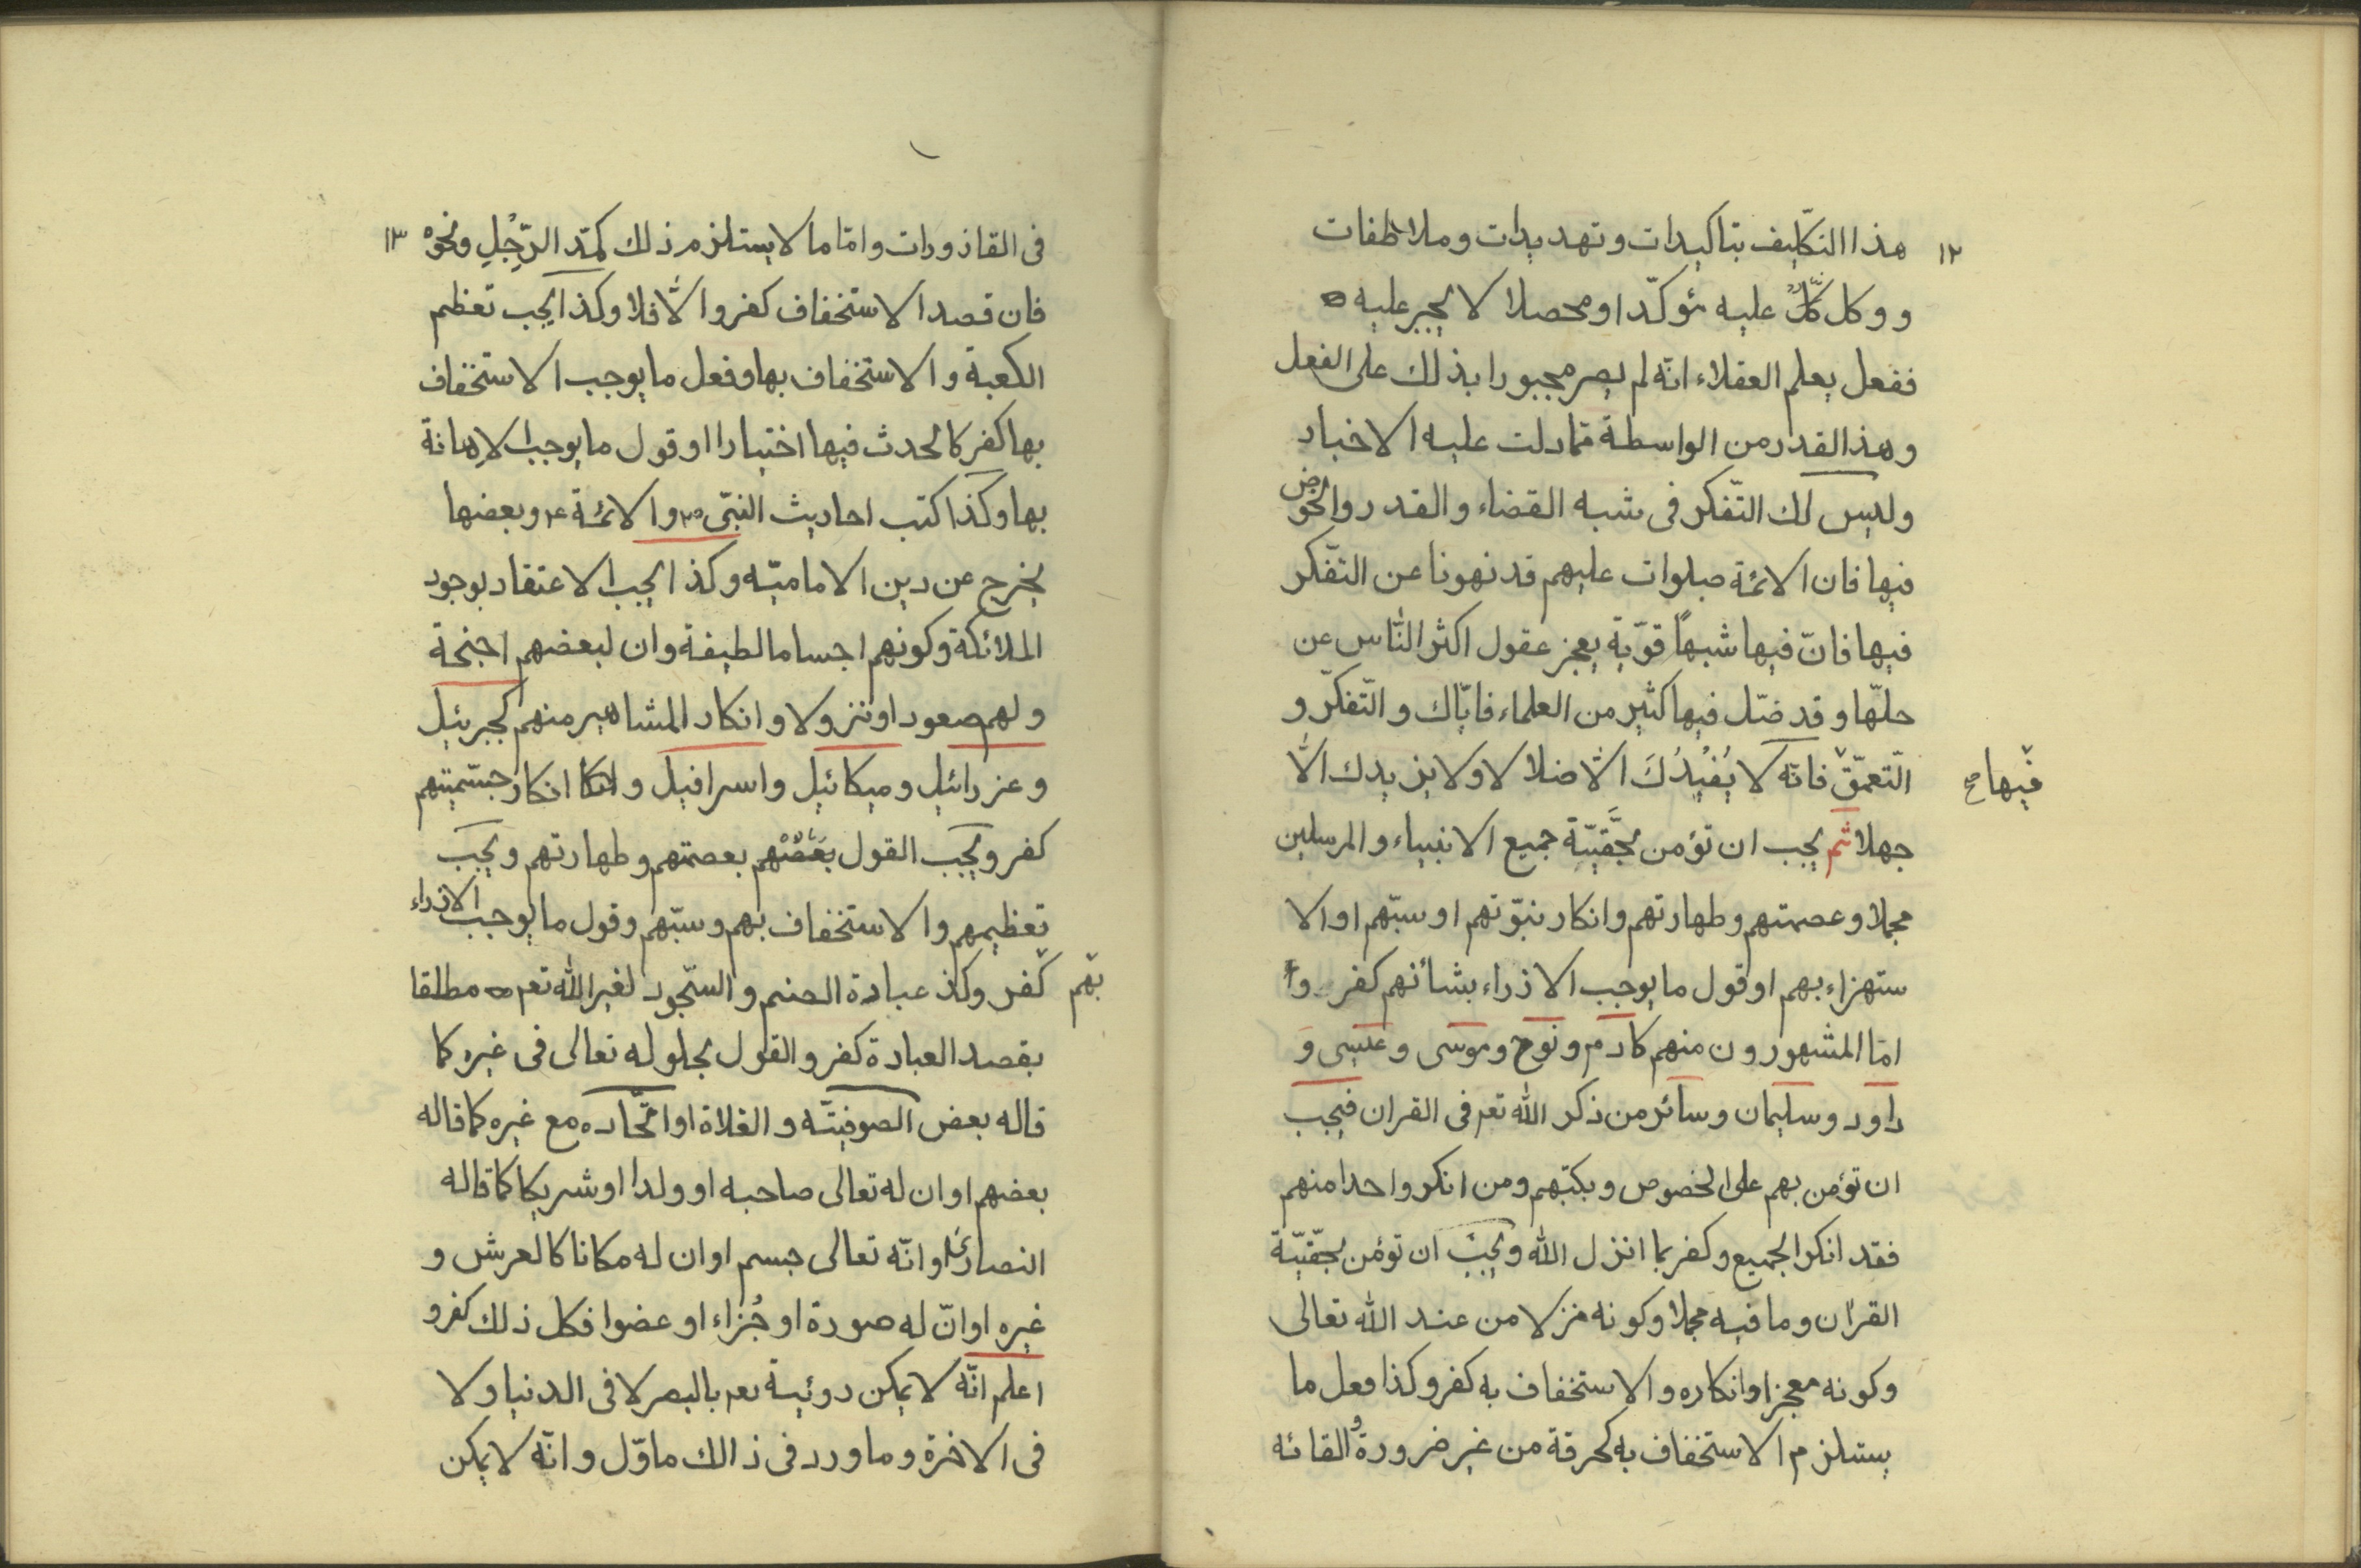 ١٢
هذا التكليف بتاكيدات وتهديدات وملاطفات
ووكل عليه مؤكدا ومحصلا لا يجبر عليه
ففعل يعلم العقلاء انّه لم يصر مجبورا بذلك على الفعل
وهذا القدر من الواسطة مما دلت عليه الاخبار
وليس لك التّفكر فى شبه القضاء والقدر والخوض
فيها فان الائمة صلوات عليهم قد نهونا عن التفّكر
فيها فانّ فيها شبهاً قوّية يعجز عقول اكثر النّاس عن
حلّها وقد ضّل فيها كثير من العلماء فايّاك والتّفكّر و
التّعمّق فانّه لا يُفيْدُكَ الّا ضلالا ولا يزيدك الّا
فيها صح
جهلا ثم يجب ان تؤمن بحَّقيّة جميع الانبياء والمرسلين
مجملا وعصمتهم وطهارتهم وانكار نبوّتهم او سبّهم او الا
ستهزاء بهم او قول ما يوجب الازراء بشأنهم كفر و
امّا المشهورون منهم كادم ونوح وموسى وعيسى وَ
داود وسليمان وسائر من ذكر الله تعم فى القران فيجب
ان تؤمن بهم على الخصوص وبكتبهم ومن انكر واحدا منهم
فقد انكر الجميع وكفر بما انزل الله ويجب ان تؤمن بحقّيّة
القرآن وما فيه مجملا وكونه منزلا من عند الله تعالى
وكونه معجزا وانكاره والاستخفاف به كفر وكذا فعل ما
يستلزم الاستخفاف به كحرقة من غير ضرورة والقائه
١٣
فى القاذورات وامّا ما لا يستلزم ذلك كمّد الرِّجْلِ ونحوه
فان قصد الاستخفاف كفر والّا فلا وكذا يجب تعظيم
الكعبة والاستخفاف بها وفعل ما يوجب الاستخفاف
بها كفر كالحدث فيها اختيارا او قول ما يوجب الاهانة
بها وكذا كتب احاديث النبّى ص والائمة ع وبعضها
يخرج عن دين الاماميّه وكذا يجب الاعتقاد بوجود
الملائكة وكونهم اجساما لطيفة وان لبعضهم اجنحة
ولهم صعودا ونزولا وانكار المشاهير منهم كجبرئيل
وعزرائيل وميكائيل واسرافيل و انكار جسّميتهم
كفر ويجب القول بعضهم بعصمتهم وطهارتهم ويجب
تعظيمهم والاستخفاف بهم وسبّهم وقول ما يوجب الازراء
بهم
كفر وكذ عبادة الصنم والسّجود لغير الله تعم مطلقا
بقصد العبادة كفر والقول بحلوله تعالى فى غيره كما
قاله بعض الصوفيّه والغلاة او اتّحاده مع غيره كما قاله
بعضهم او ان له تعالى صاحبه او ولدا او شريكا كما قاله
النصارى او انّه تعالى جسم او ان له مكانا كالعرش و
غيره او انّ له صورة او جُزاء او عضوا فكل ذلك كفر و
اعلم انّه لا يمكن روئية تعم بالبصر لا فى الدنيا ولا
فى الاخرة وما ورد فى ذالك ماوّل وانّه لا يمكن